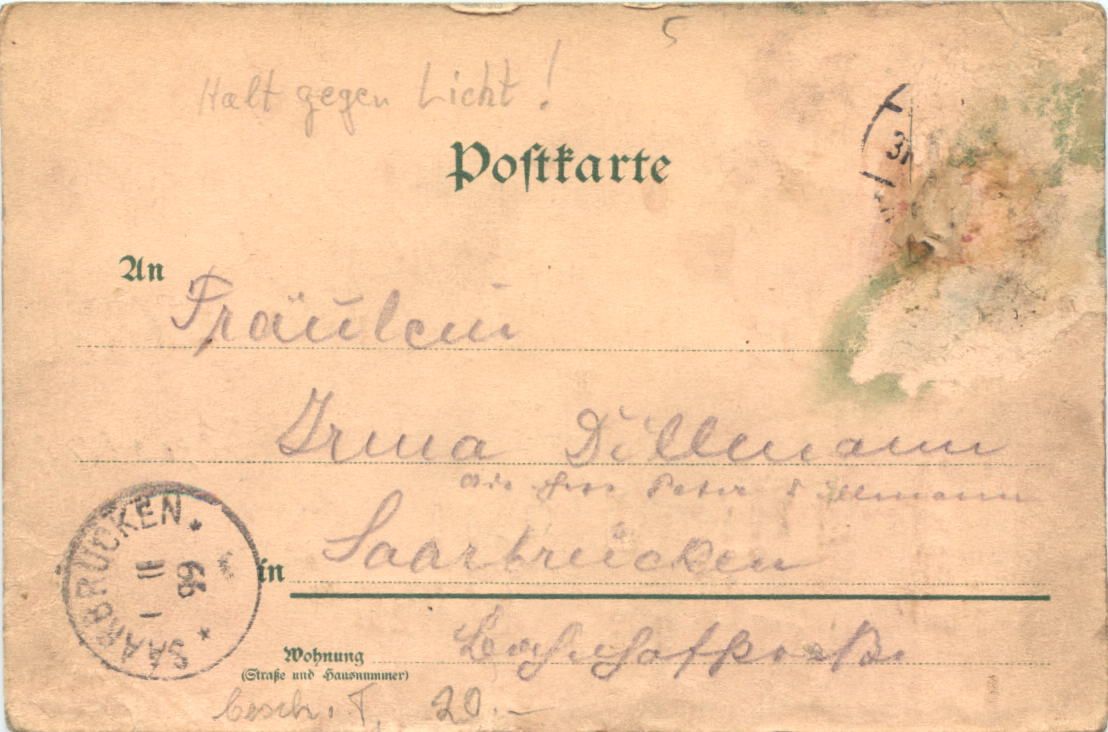 5
Halt gegen Licht!
Postkarte
31
An
Fräulein
Irma Dillmann
Peter Dillmann
in Saarbrücken
SAARBRÜCKEN
1 11 99
Wohnung
(Straße und Hausnummer)
Bahnhofstraße
besch. T. 20.-